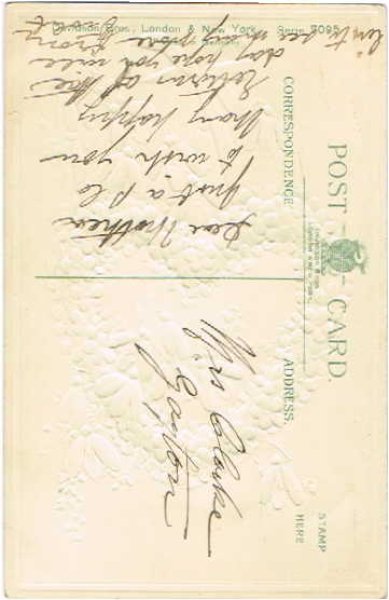 POST CARD.
CORRESPONDENCE
ADDRESS.
STAMP
HERE
Dear Mother
Just a P.C
to wish you
Many happy
Returns of the
day hope you will
see many more from
Mrs Clarke
Gayton
Davidson Bros., London & New York. Series 3095.